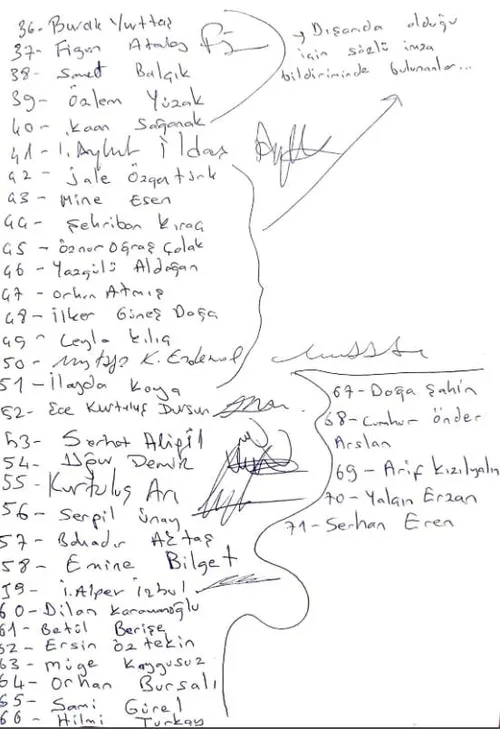 36- Burak Yurttaş
37- Figen Atalay
38- Samet Balçık
39- Özlem Yüzak
40- Kaan Sağanak
41- İ. Aykut İldaş
42- Jale Özgentürk
43- Mine Esen
44- Şehriban Kıraç
45- Öznur Oğraş Çolak
46- Yazgülü Aldoğan
47- Orhun Atmış
48- İlker Güneş Doğa
49- Ceyla Kılıç
50- Mustafa K. Erdemol
51- İlayda Kaya
52- Ece Kurtuluş Dursun
53- Serhat Aligil
54- Uğur Demir
55- Kurtuluş Arı
56- Serpil Ünay
57- Bahadır Aktaş
58- Emine Bilget
59- İ. Alper İzbul
60- Dilan
61- Betül Berişe
62- Ersin Öztekin
63- Müge Kaygusuz
64- Orhan Bursalı
65- Sami Gürel
66- Hilmi Türkay
→ Dışarıda olduğu
için sözlü imza
bildiriminde bulunanlar...
67- Doğa Şahin
68- Cumhur Önder
Arslan
69- Arif Kızılyalın
70- Yalçın Erzan
71- Serhan Eren